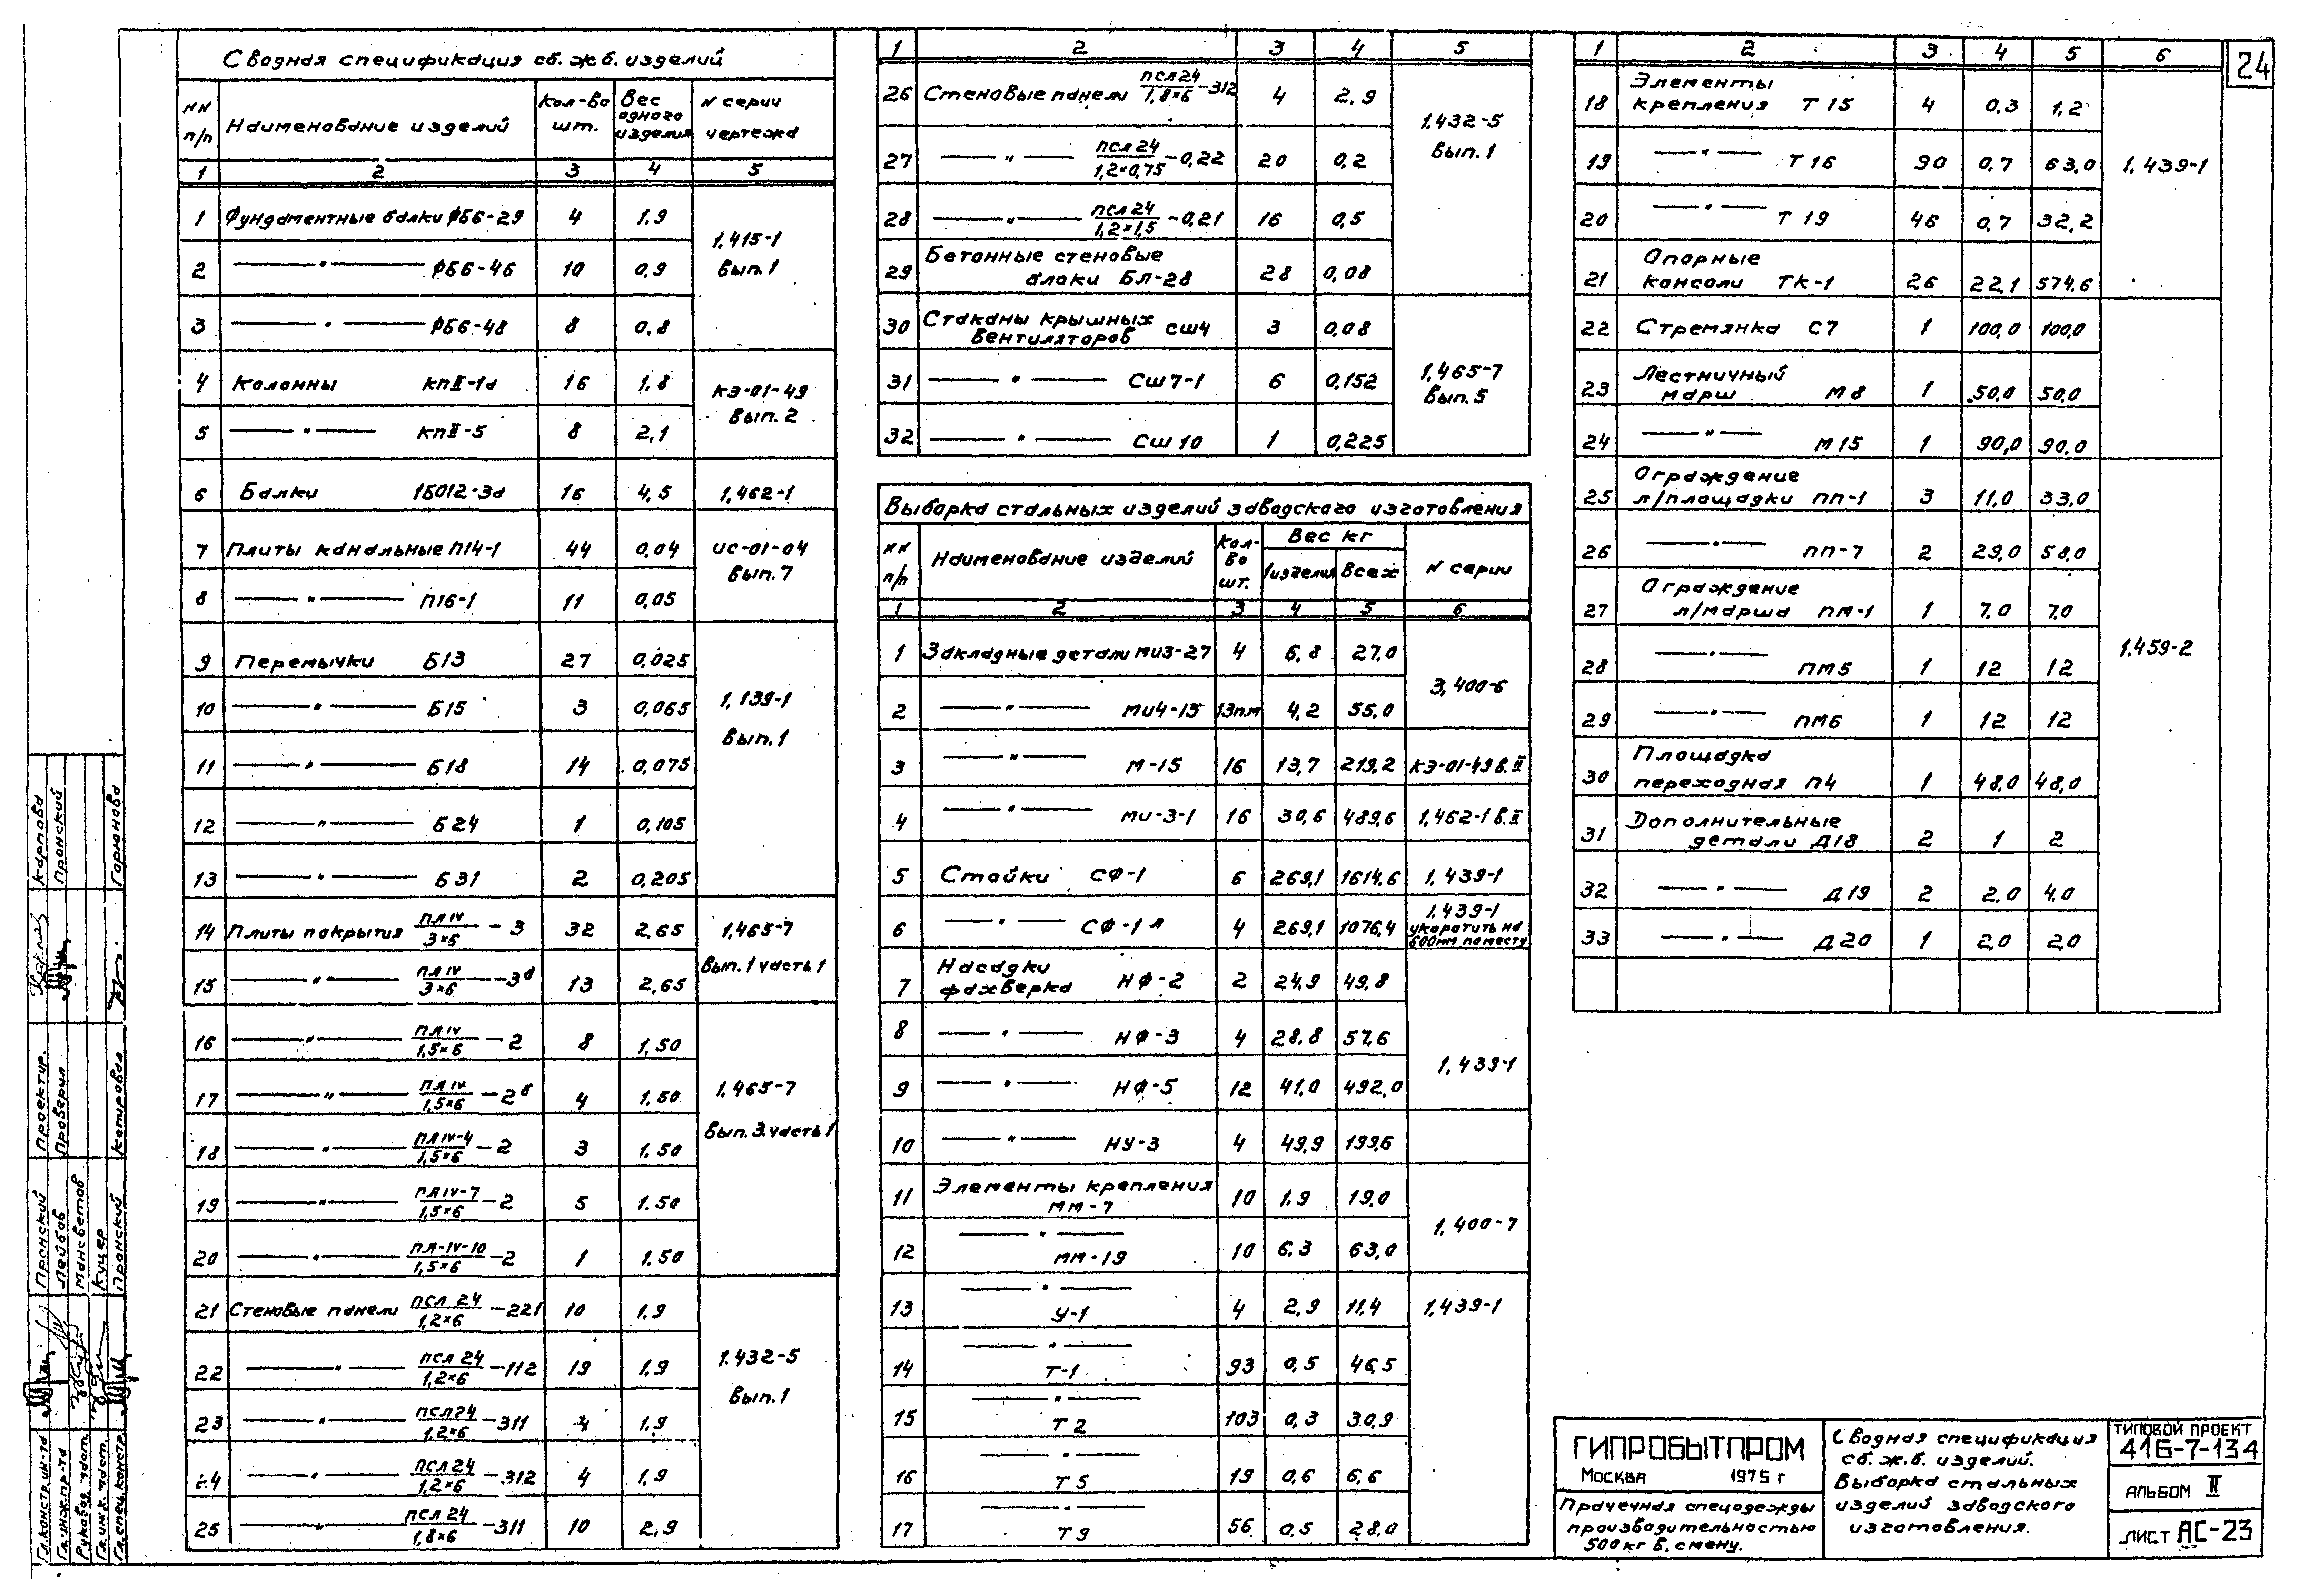 24
Сводная спецификация сб. ж.б. изделий
NN п/п | Наименование изделий | Кол-во шт. | Вес одного изделия | N серии чертежа
1 | 2 | 3 | 4 | 5
1 | Фундаментные балки ФБ6-29 | 4 | 1,9 | 1.415-1 Вып.1
2 | —"— ФБ6-46 | 10 | 0,9
3 | —"— ФБ6-48 | 8 | 0,8
4 | Колонны КПII-1а | 16 | 1,8 | КЭ-01-49 Вып.2
5 | —"— КПII-5 | 8 | 2,1
6 | Балки 1БО12-3а | 16 | 4,5 | 1.462-1
7 | Плиты канальные П14-1 | 44 | 0,04 | ИС-01-04 Вып.7
8 | —"— П16-1 | 11 | 0,05
9 | Перемычки Б13 | 27 | 0,025 | 1.139-1 Вып.1
10 | —"— Б15 | 3 | 0,065
11 | —"— Б18 | 14 | 0,075
12 | —"— Б24 | 1 | 0,105
13 | —"— Б31 | 2 | 0,205
14 | Плиты покрытия ПЛIV/3×6 -3 | 32 | 2,65 | 1.465-7 Вып.1 часть 1
15 | —"— ПЛIV/3×6 -3а | 13 | 2,65
16 | —"— ПЛIV/1,5×6 -2 | 8 | 1,50 | 1.465-7 Вып.3.часть 1
17 | —"— ПЛIV/1,5×6 -2б | 4 | 1.50
18 | —"— ПЛIV-4/1,5×6 -2 | 3 | 1.50
19 | —"— ПЛIV-7/1,5×6 -2 | 5 | 1.50
20 | —"— ПЛ-IV-10/1,5×6 -2 | 1 | 1.50
21 | Стеновые панели ПСЛ 24/1,2×6 -221 | 10 | 1.9 | 1.432-5 Вып.1
22 | —"— ПСЛ 24/1,2×6 -112 | 19 | 1.9
23 | —"— ПСЛ24/1,2×6 -311 | 4 | 1.9
24 | —"— ПСЛ24/1,2×6 -312 | 4 | 1.9
25 | —"— ПСЛ 24/1,8×6 -311 | 10 | 2,9
1 | 2 | 3 | 4 | 5
26 | Стеновые панели ПСЛ24/1,8×6 -312 | 4 | 2,9 | 1.432-5 Вып.1
27 | —"— ПСЛ 24/1,2×0,75 -0,22 | 20 | 0,2
28 | —"— ПСЛ 24/1,2×1,5 -0,21 | 16 | 0,5
29 | Бетонные стеновые блоки БЛ-28 | 28 | 0,08
30 | Стаканы крышных вентиляторов СШ4 | 3 | 0,08 | 1.465-7 Вып.5
31 | —"— СШ7-1 | 6 | 0,152
32 | —"— СШ 10 | 1 | 0,225
Выборка стальных изделий заводского изготовления
NN п/п | Наименование изделий | Кол-во шт. | Вес кг | 1изделия | Всех | N серии
1 | 2 | 3 | 4 | 5 | 6
1 | Закладные детали МИ3-27 | 4 | 6,8 | 27.0 | 3.400-6
2 | —"— МИ4-15 | 13п.м | 4,2 | 55,0
3 | —"— М-15 | 16 | 13,7 | 219,2 | КЭ-01-49 В.II
4 | —"— МИ-3-1 | 16 | 30,6 | 489,6 | 1.462-1 В.II
5 | Стойки СФ-1 | 6 | 269,1 | 1614,6 | 1.439-1
6 | —"— СФ-1 Л | 4 | 269,1 | 1076,4 | 1.439-1 укоротить на 600мм по месту
7 | Насадки фахверка НФ-2 | 2 | 24,9 | 49,8 | 1.439-1
8 | —"— НФ-3 | 4 | 28,8 | 57,6
9 | —"— НФ-5 | 12 | 41,0 | 492,0
10 | —"— НУ-3 | 4 | 49,9 | 199,6
11 | Элементы крепления ММ-7 | 10 | 1.9 | 19,0 | 1.400-7
12 | —"— ММ-19 | 10 | 6.3 | 63,0
13 | —"— У-1 | 4 | 2,9 | 11,4 | 1.439-1
14 | —"— Т-1 | 93 | 0,5 | 46,5
15 | —"— Т 2 | 103 | 0,3 | 30,9
16 | —"— Т 5 | 19 | 0,6 | 6,6
17 | —"— Т 9 | 56 | 0,5 | 28,0
1 | 2 | 3 | 4 | 5 | 6
18 | Элементы крепления Т 15 | 4 | 0,3 | 1,2 | 1.439-1
19 | —"— Т 16 | 90 | 0,7 | 63,0
20 | —"— Т 19 | 46 | 0,7 | 32,2
21 | Опорные консоли ТК-1 | 26 | 22,1 | 574,6
22 | Стремянка С7 | 1 | 100,0 | 100,0
23 | Лестничный марш М8 | 1 | 50,0 | 50,0
24 | —"— М15 | 1 | 90,0 | 90,0
25 | Ограждение л/площадки ПП-1 | 3 | 11,0 | 33,0 | 1.459-2
26 | —"— ПП-7 | 2 | 29,0 | 58,0
27 | Ограждение л/марша ПМ-1 | 1 | 7.0 | 7,0
28 | —"— ПМ5 | 1 | 12 | 12
29 | —"— ПМ6 | 1 | 12 | 12
30 | Площадка переходная П4 | 1 | 48,0 | 48,0
31 | Дополнительные детали Д18 | 2 | 1 | 2
32 | —"— Д19 | 2 | 2,0 | 4,0
33 | —"— Д20 | 1 | 2,0 | 2,0
ГИПРОБЫТПРОМ
Москва 1975 г
Прачечная спецодежды
производительностью
500 кг в смену.
Сводная спецификация
сб. ж.б. изделий.
Выборка стальных
изделий заводского
изготовления.
ТИПОВОЙ ПРОЕКТ
416-7-134
АЛЬБОМ II
ЛИСТ АС-23
Гл.констр.ин-та Пронский Проектир. Карпова
Гл.инж.пр-та Лейбов Проверил Пронский
Руковод. част. Мансветов
Гл.инж. част. Куцер
Гл.спец.констр. Пронский Копировал Горюнова